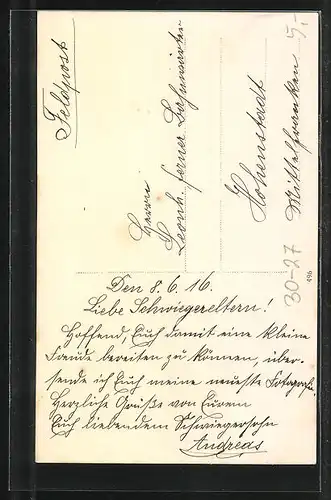 Feldpost
Herrn
Leonh. Ferner Bahnwärter
Hohenstadt
Mittelfranken
5.-
30-27
496
Den 8. 6. 16.
Liebe Schwiegereltern!
Hoffend, Euch damit eine kleine
Freude bereiten zu können, über-
sende ich Euch meine neueste Fotografie.
Herzliche Grüße von Eurem
Euch liebendem Schwiegersohn
Andreas